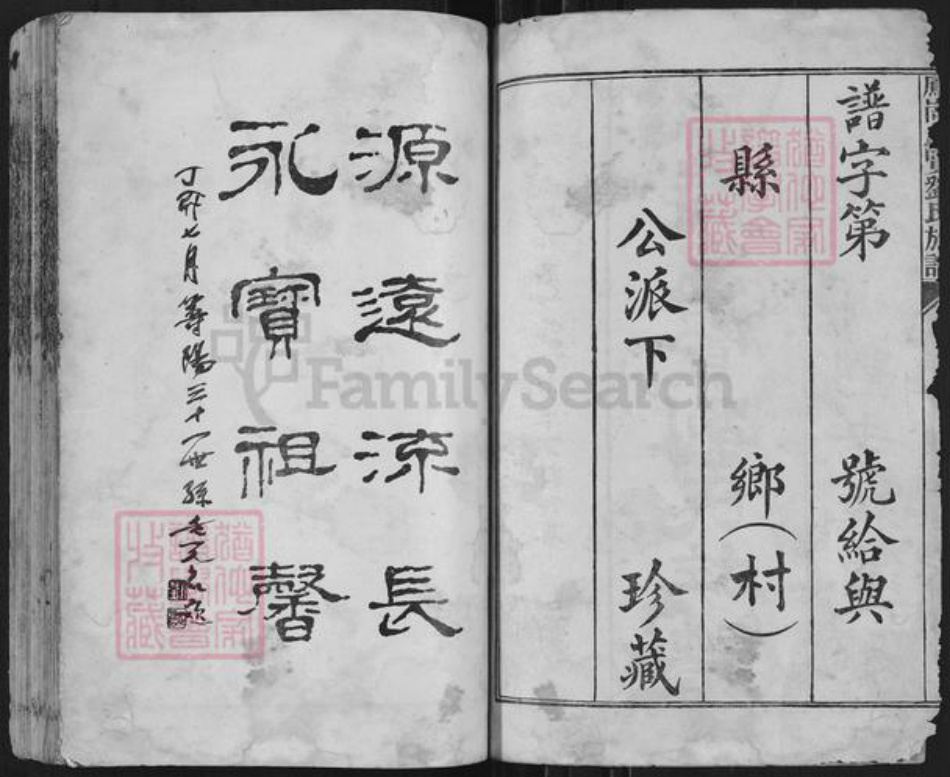 譜字第 號給與
縣 鄉（村）
公派下 珍藏
源遠流長
永寶祖馨
丁卯七月 尋陽三十一世孫
FamilySearch